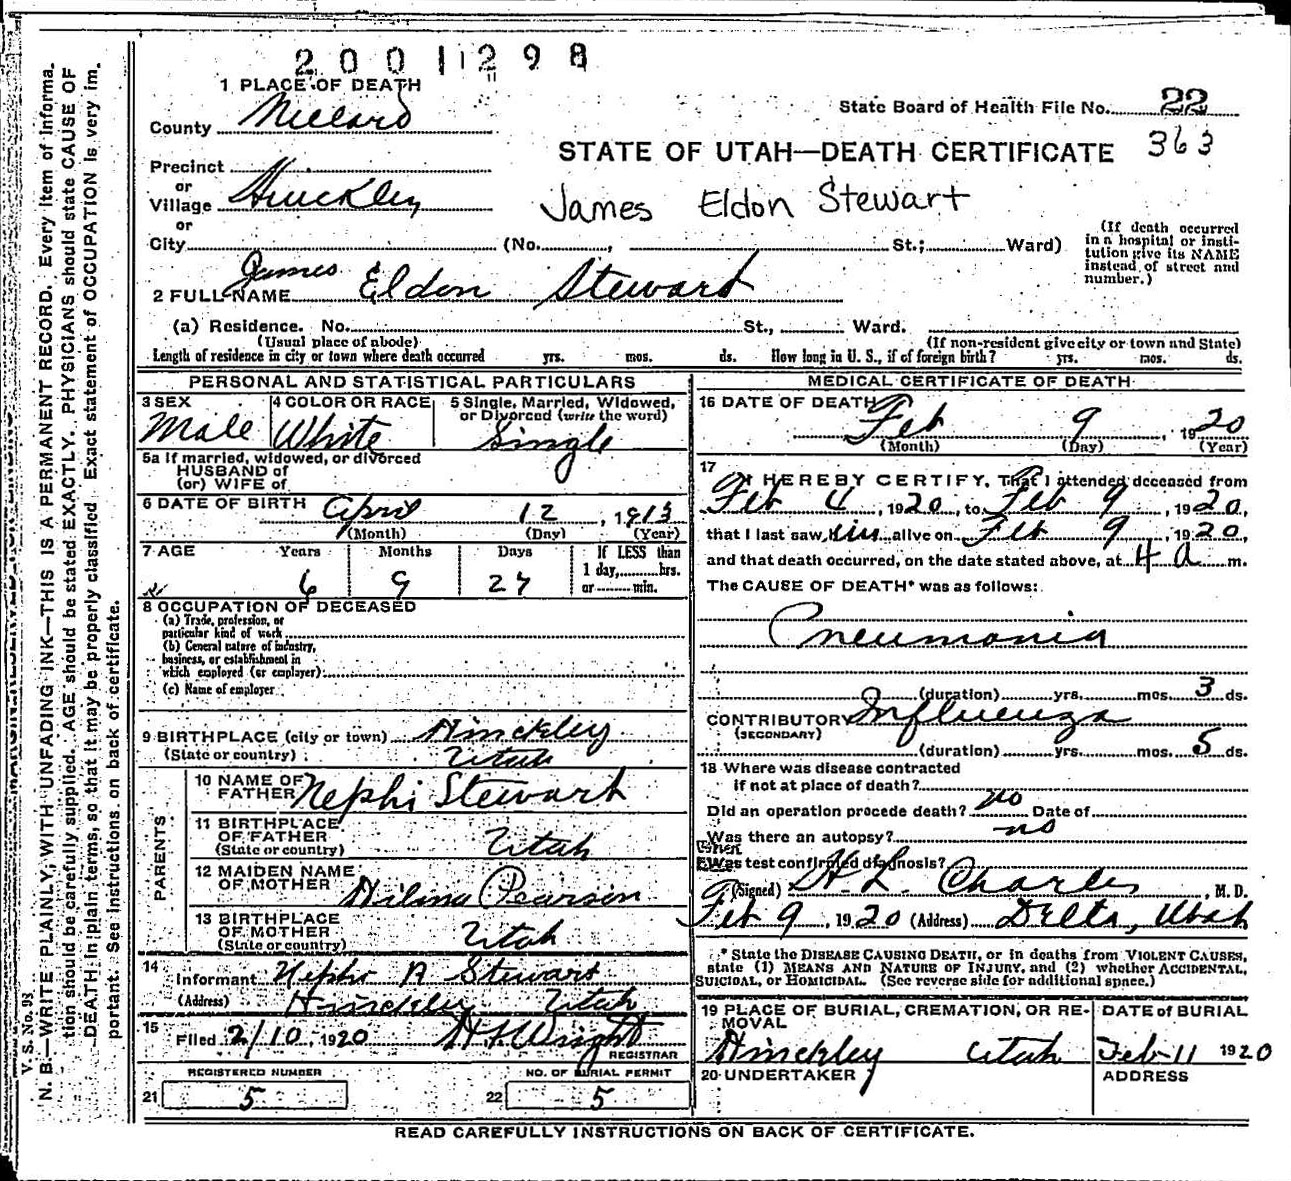 2001298
1 PLACE OF DEATH
County Millard
State Board of Health File No. 22
363
STATE OF UTAH—DEATH CERTIFICATE
Precinct
or
Village Hinckley
James Eldon Stewart
or
City (No. , St.; Ward)
(If death occurred in a hospital or insti-
tution give its NAME instead of street and number.)
2 FULL NAME James Eldon Stewart
(a) Residence. No. St., Ward.
(Usual place of abode) (If non-resident give city or town and State)
Length of residence in city or town where death occurred yrs. mos. ds. How long in U. S., if of foreign birth? yrs. mos. ds.
PERSONAL AND STATISTICAL PARTICULARS
3 SEX 4 COLOR OR RACE 5 Single, Married, Widowed,
or Divorced (write the word)
Male White Single
5a If married, widowed, or divorced
HUSBAND of
(or) WIFE of
6 DATE OF BIRTH April 12, 1913
(Month) (Day) (Year)
7 AGE Years Months Days If LESS than
1 day, hrs.
6 9 27 or min.
8 OCCUPATION OF DECEASED
(a) Trade, profession, or
particular kind of work
(b) General nature of industry,
business, or establishment in
which employed (or employer)
(c) Name of employer
9 BIRTHPLACE (city or town) Hinckley
(State or country) Utah
PARENTS
10 NAME OF
FATHER Nephi Stewart
11 BIRTHPLACE
OF FATHER
(State or country) Utah
12 MAIDEN NAME
OF MOTHER Hilma Pearson
13 BIRTHPLACE
OF MOTHER
(State or country) Utah
14
Informant Nephi A Stewart
(Address) Hinckley Utah
15
Filed 2/10, 1920 H.F. Wright
REGISTRAR
REGISTERED NUMBER NO. OF BURIAL PERMIT
21 5 22 5
MEDICAL CERTIFICATE OF DEATH
16 DATE OF DEATH
Feb 9, 1920
(Month) (Day) (Year)
17
I HEREBY CERTIFY, That I attended deceased from
Feb 4, 1920, to Feb 9, 1920,
that I last saw him alive on Feb 9, 1920,
and that death occurred, on the date stated above, at 4 a m.
The CAUSE OF DEATH* was as follows:
Pneumonia
(duration) yrs. mos. 3 ds.
CONTRIBUTORY Influenza
(SECONDARY)
(duration) yrs. mos. 5 ds.
18 Where was disease contracted
if not at place of death?
Did an operation precede death? no Date of
Was there an autopsy? no
Was test confirmed diagnosis?
(Signed) H. L. Charles, M. D.
Feb 9, 1920 (Address) Delta, Utah
* State the DISEASE CAUSING DEATH, or in deaths from VIOLENT CAUSES,
state (1) MEANS AND NATURE OF INJURY, and (2) whether ACCIDENTAL,
SUICIDAL, or HOMICIDAL. (See reverse side for additional space.)
19 PLACE OF BURIAL, CREMATION, OR RE-
MOVAL
DATE of BURIAL
Hinckley Utah Feb 11 1920
20 UNDERTAKER ADDRESS
READ CAREFULLY INSTRUCTIONS ON BACK OF CERTIFICATE.
V. S. No. 93
N. B.—WRITE PLAINLY, WITH UNFADING INK—THIS IS A PERMANENT RECORD. Every item of informa-
tion should be carefully supplied. AGE should be stated EXACTLY. PHYSICIANS should state CAUSE OF
DEATH in plain terms, so that it may be properly classified. Exact statement of OCCUPATION is very im-
portant. See instructions on back of certificate.